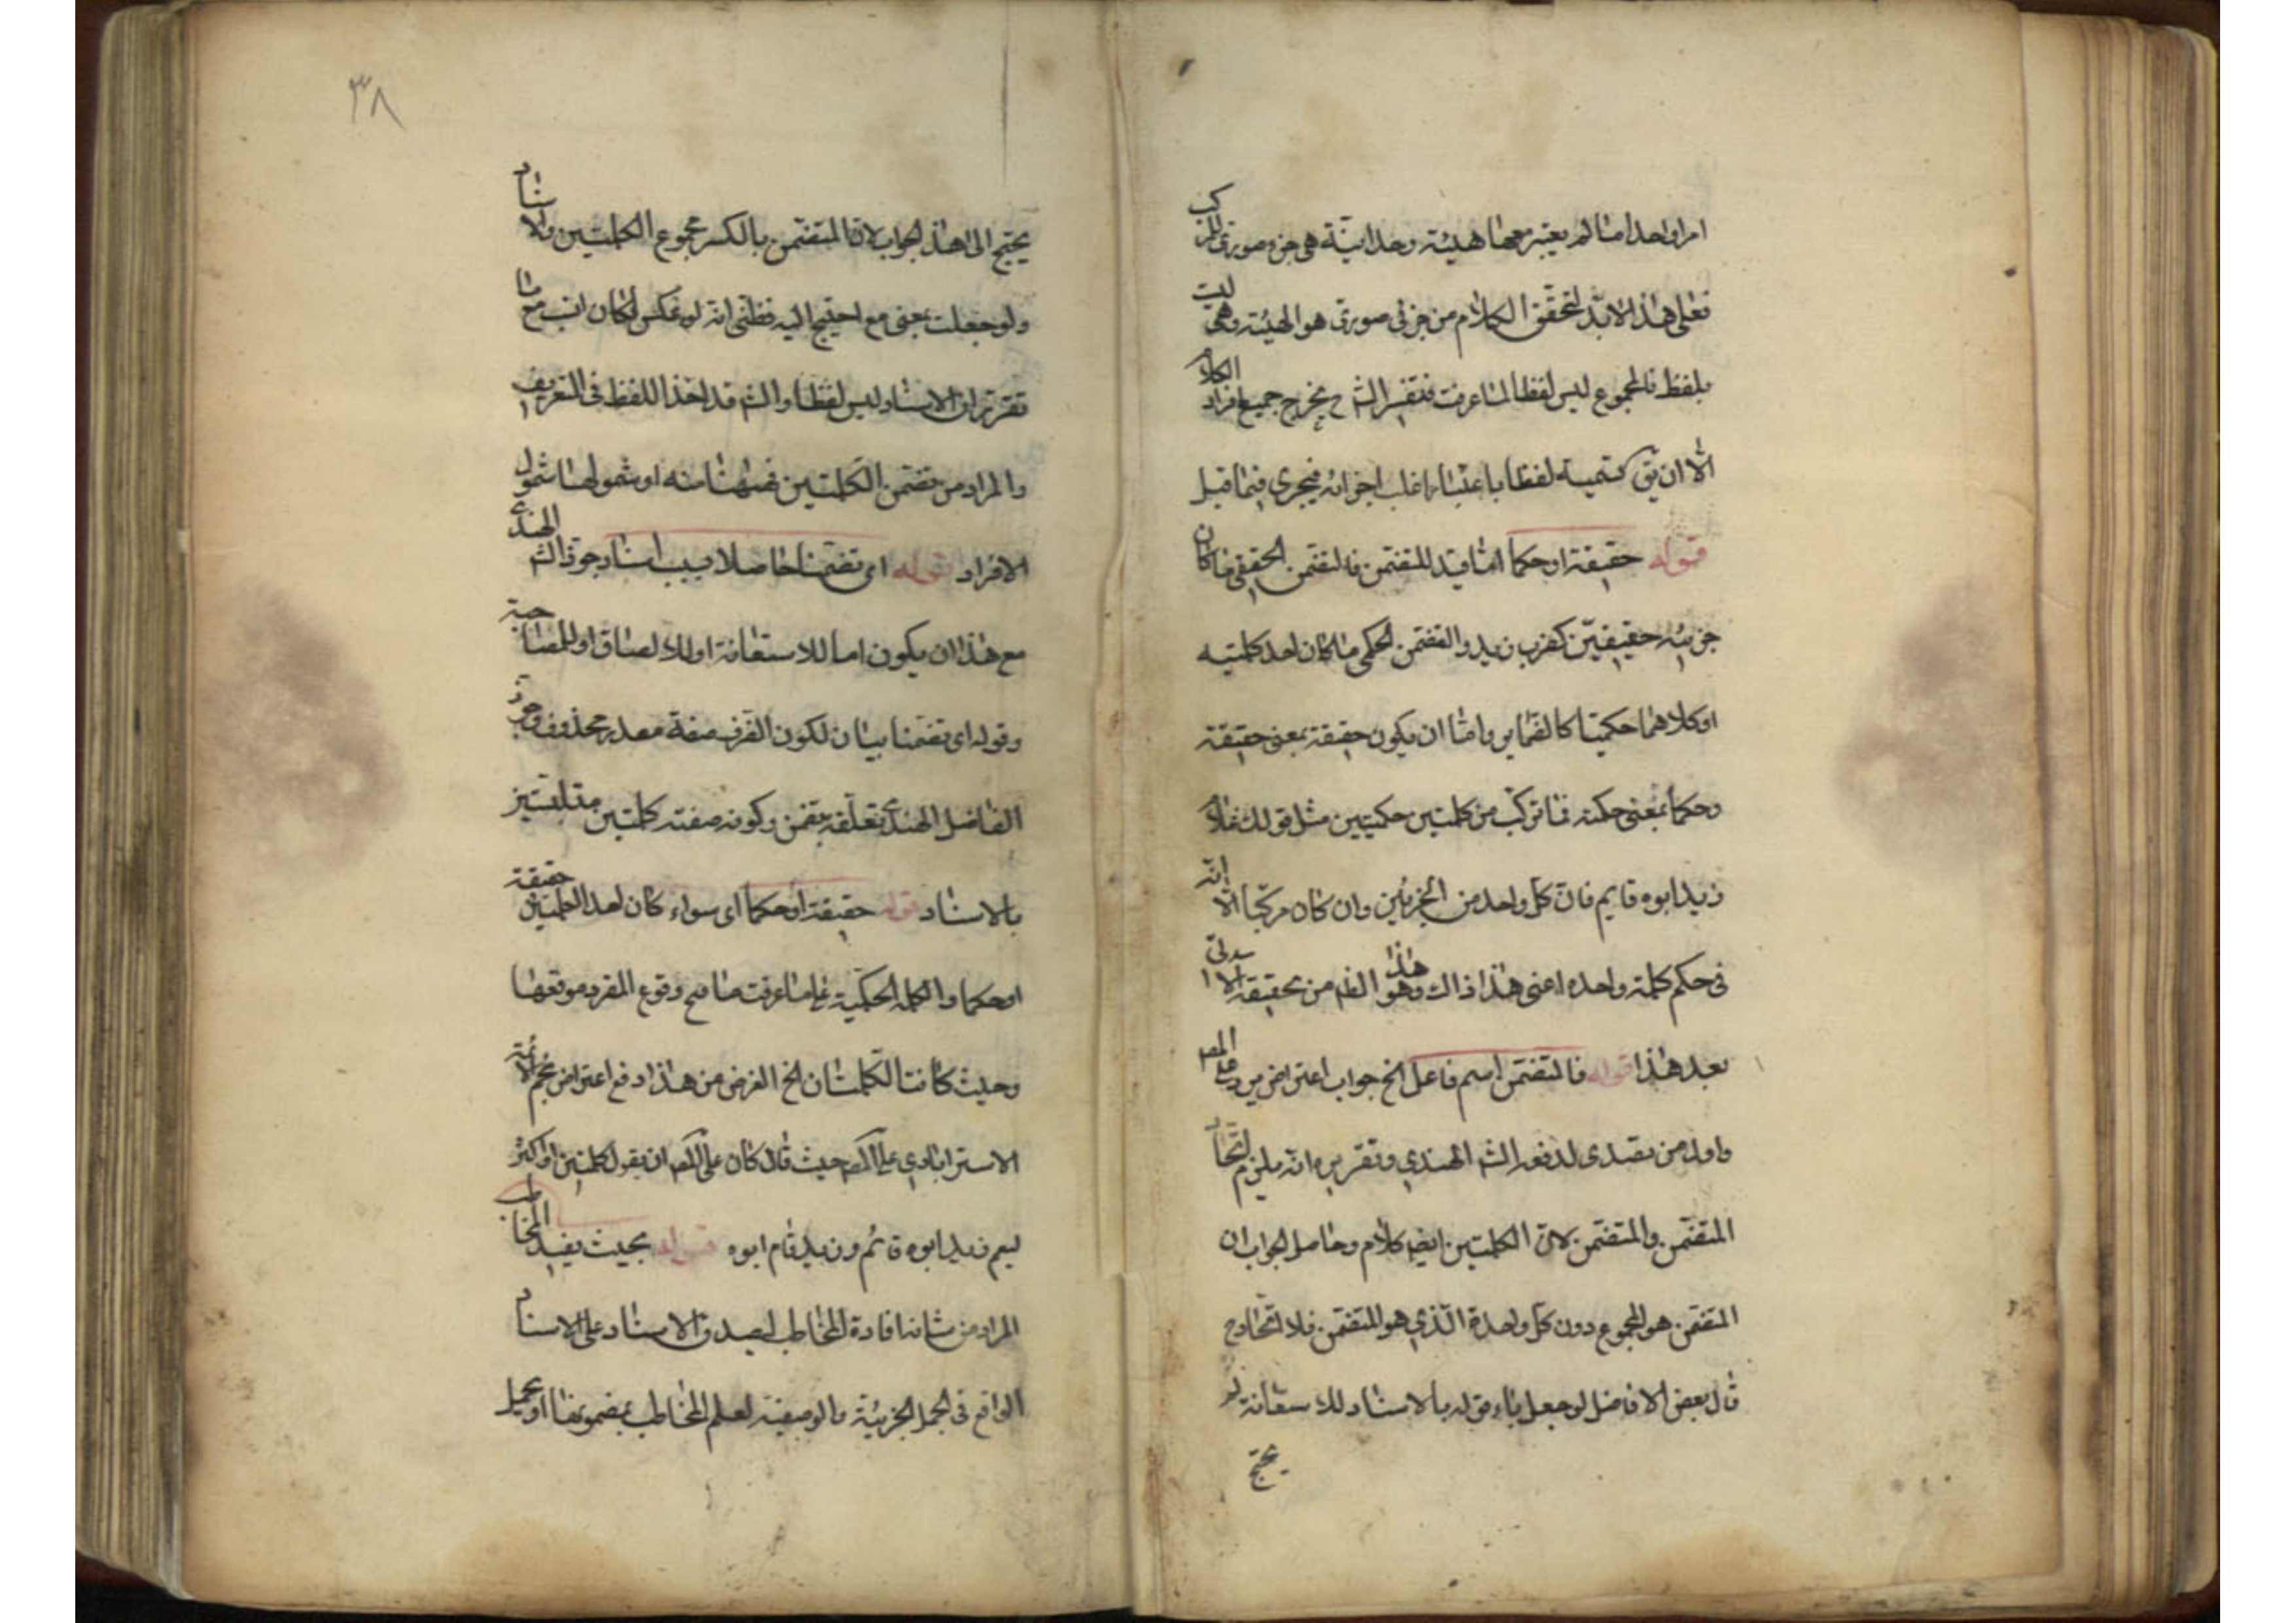 امرا واحدا ما لم يعتبر معها هيئة وحدانيّة هى جزء صورى للمركب
فعلى هذا لابدّ لتحقّق الكلام من جزئى صورى هو الهيئة وهى ليست
بلفظ فالمجموع ليس لفظا لما عرفت فتفسير الشم ح يخرج جميع افراد الكلام
الّا ان يق كتسميته لفظا باعتبار اغلب اجزائه فيجرى فيما قيل
قوله حقيقة او حكما امّا قيد للتضمن فالتضمن الحقيقى ما كان
جزئيه حقيقيّين كضرب زيد والتضمن الحكمى ما كان احد كلمتيه
او كلاهما حكميّا كالضماير وامّا ان يكون حقيقة بمعنى حقيقة
وحكما بمعنى حكمته فما تركّب من كلمتين حكميتين مثل قولك
زيد ابوه قايم فانّ كلّ واحد من الجزئين وان كان مركّبا الّا انّه
فى حكم كلمة واحدة اعنى هذا ذاك وهو هذا الظم من تحقيقه الاتى
بعد هذا قوله فالمتضمّن اسم فاعل الخ جواب اعتراض يرد على المصم
واول من تصدى لدفعه الشم الهندى وتقريره انّه يلزم اتّحاد
المتضمّن والمتضمّن لانّ الكلمتين ايضا كلام وحاصل الجواب ان
المتضمّن هو المجموع دون كلّ واحدة الّذى هو المتضمّن فلا اتّحاد ح
قال بعض الافاضل لو جعل باء قوله بالاسناد للاستعانة لم
يحتج
٣٨
يحتج الى هذا الجواب لانّ المتضمّن بالكسر مجموع الكلمتين والاسناد
ولو جعلت بمعنى مع احتيج اليه فظنّى انّه لو عكس لكان انسب مع ما
تقرّر ان الاسناد ليس لفظا والشم قد اخذ اللفظ فى التعريف
والمراد من تضمّن الكلمتين شمولهما شمول
الافراد قوله اى تضمّنا حاصلا بسبب اسناد جوّز الشم الهندى
مع هذا ان يكون اما للاستعانة او للالصاق او للمصاحبة
وقوله اى تضمّنا بيان لكون الظرف صفة مصدر محذوف وجوّز
الفاضل الهندى تعلّقه بتضمن وكونه صفة كلمتين متلبستين
بالاسناد قوله حقيقة او حكما اى سواء كان احد الكلمتين حقيقة
او حكما والكلمه الحكميّة على ما عرفت ما صح وقوع المفرد موقعها
وحيث كانتا الكلمتان الخ الغرض من هذا دفع اعتراض نجم الائمّة
الاستراباذى على المصم حيث قال كان على المصم ان يقول كلمتين او اكثر
ليعم زيد ابوه قائم وزيد قام ابوه قوله بحيث يفيد المخاطب
المراد من شانه افادة المخاطب ليصدق الاسناد على الاسناد
الواقع فى الجمل الخبريّة والوصفية لعلم المخاطب بمضمونها او